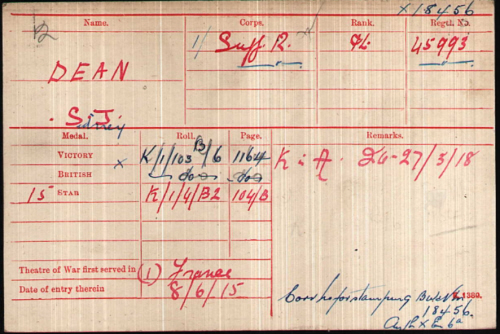 x 18456
Name. Corps. Rank. Regtl. No.
1/ Suff. R. Pte 45993
DEAN
S. J.
Sidney
Medal. Roll. Page. Remarks.
VICTORY x K/1/103 B/6 1164 K in A. 27/3/18
BRITISH do do
15 STAR K/1/4/B2 104/B
Theatre of War first served in (1) France
Date of entry therein 8/6/15
1380.
18456